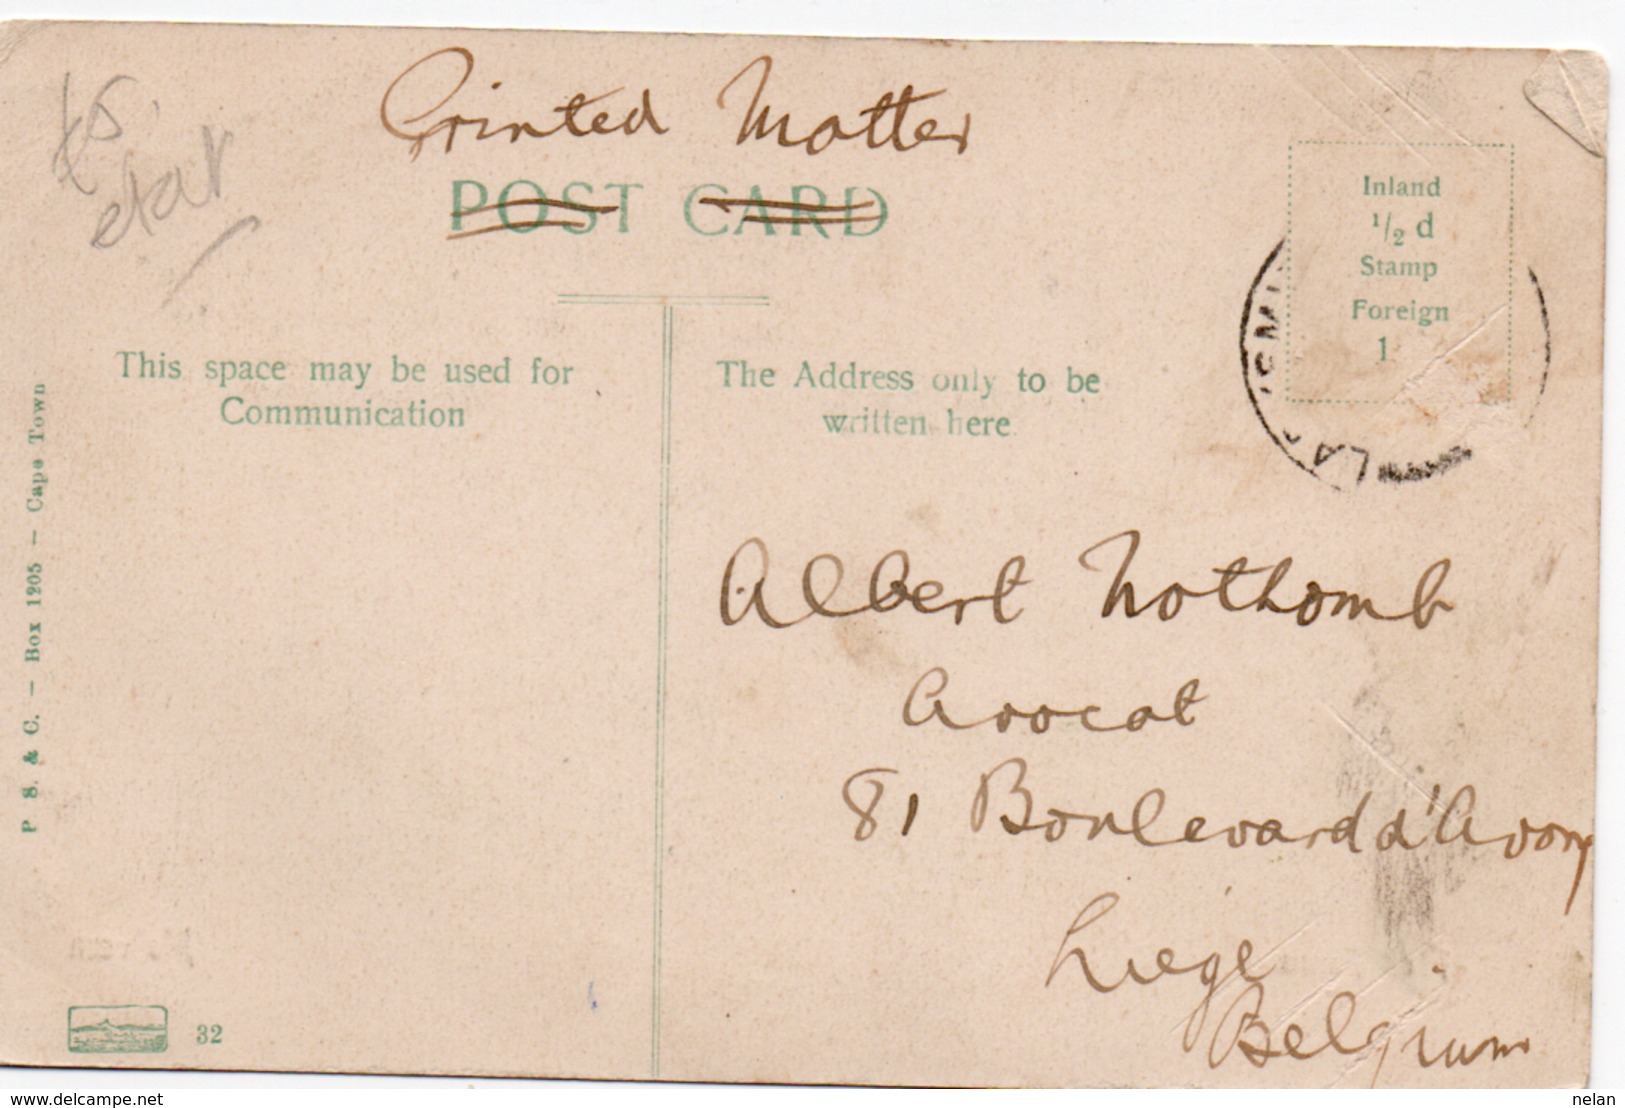 Printed Matter
POST CARD
Inland
1/2 d
Stamp
Foreign
1
This space may be used for
Communication
The Address only to be
written here
P. S. & C. — Box 1205 — Cape Town
Albert Nothomb
Avocat
81 Boulevard d'Avroy
Liege
Belgium
32
www.delcampe.net
nelan